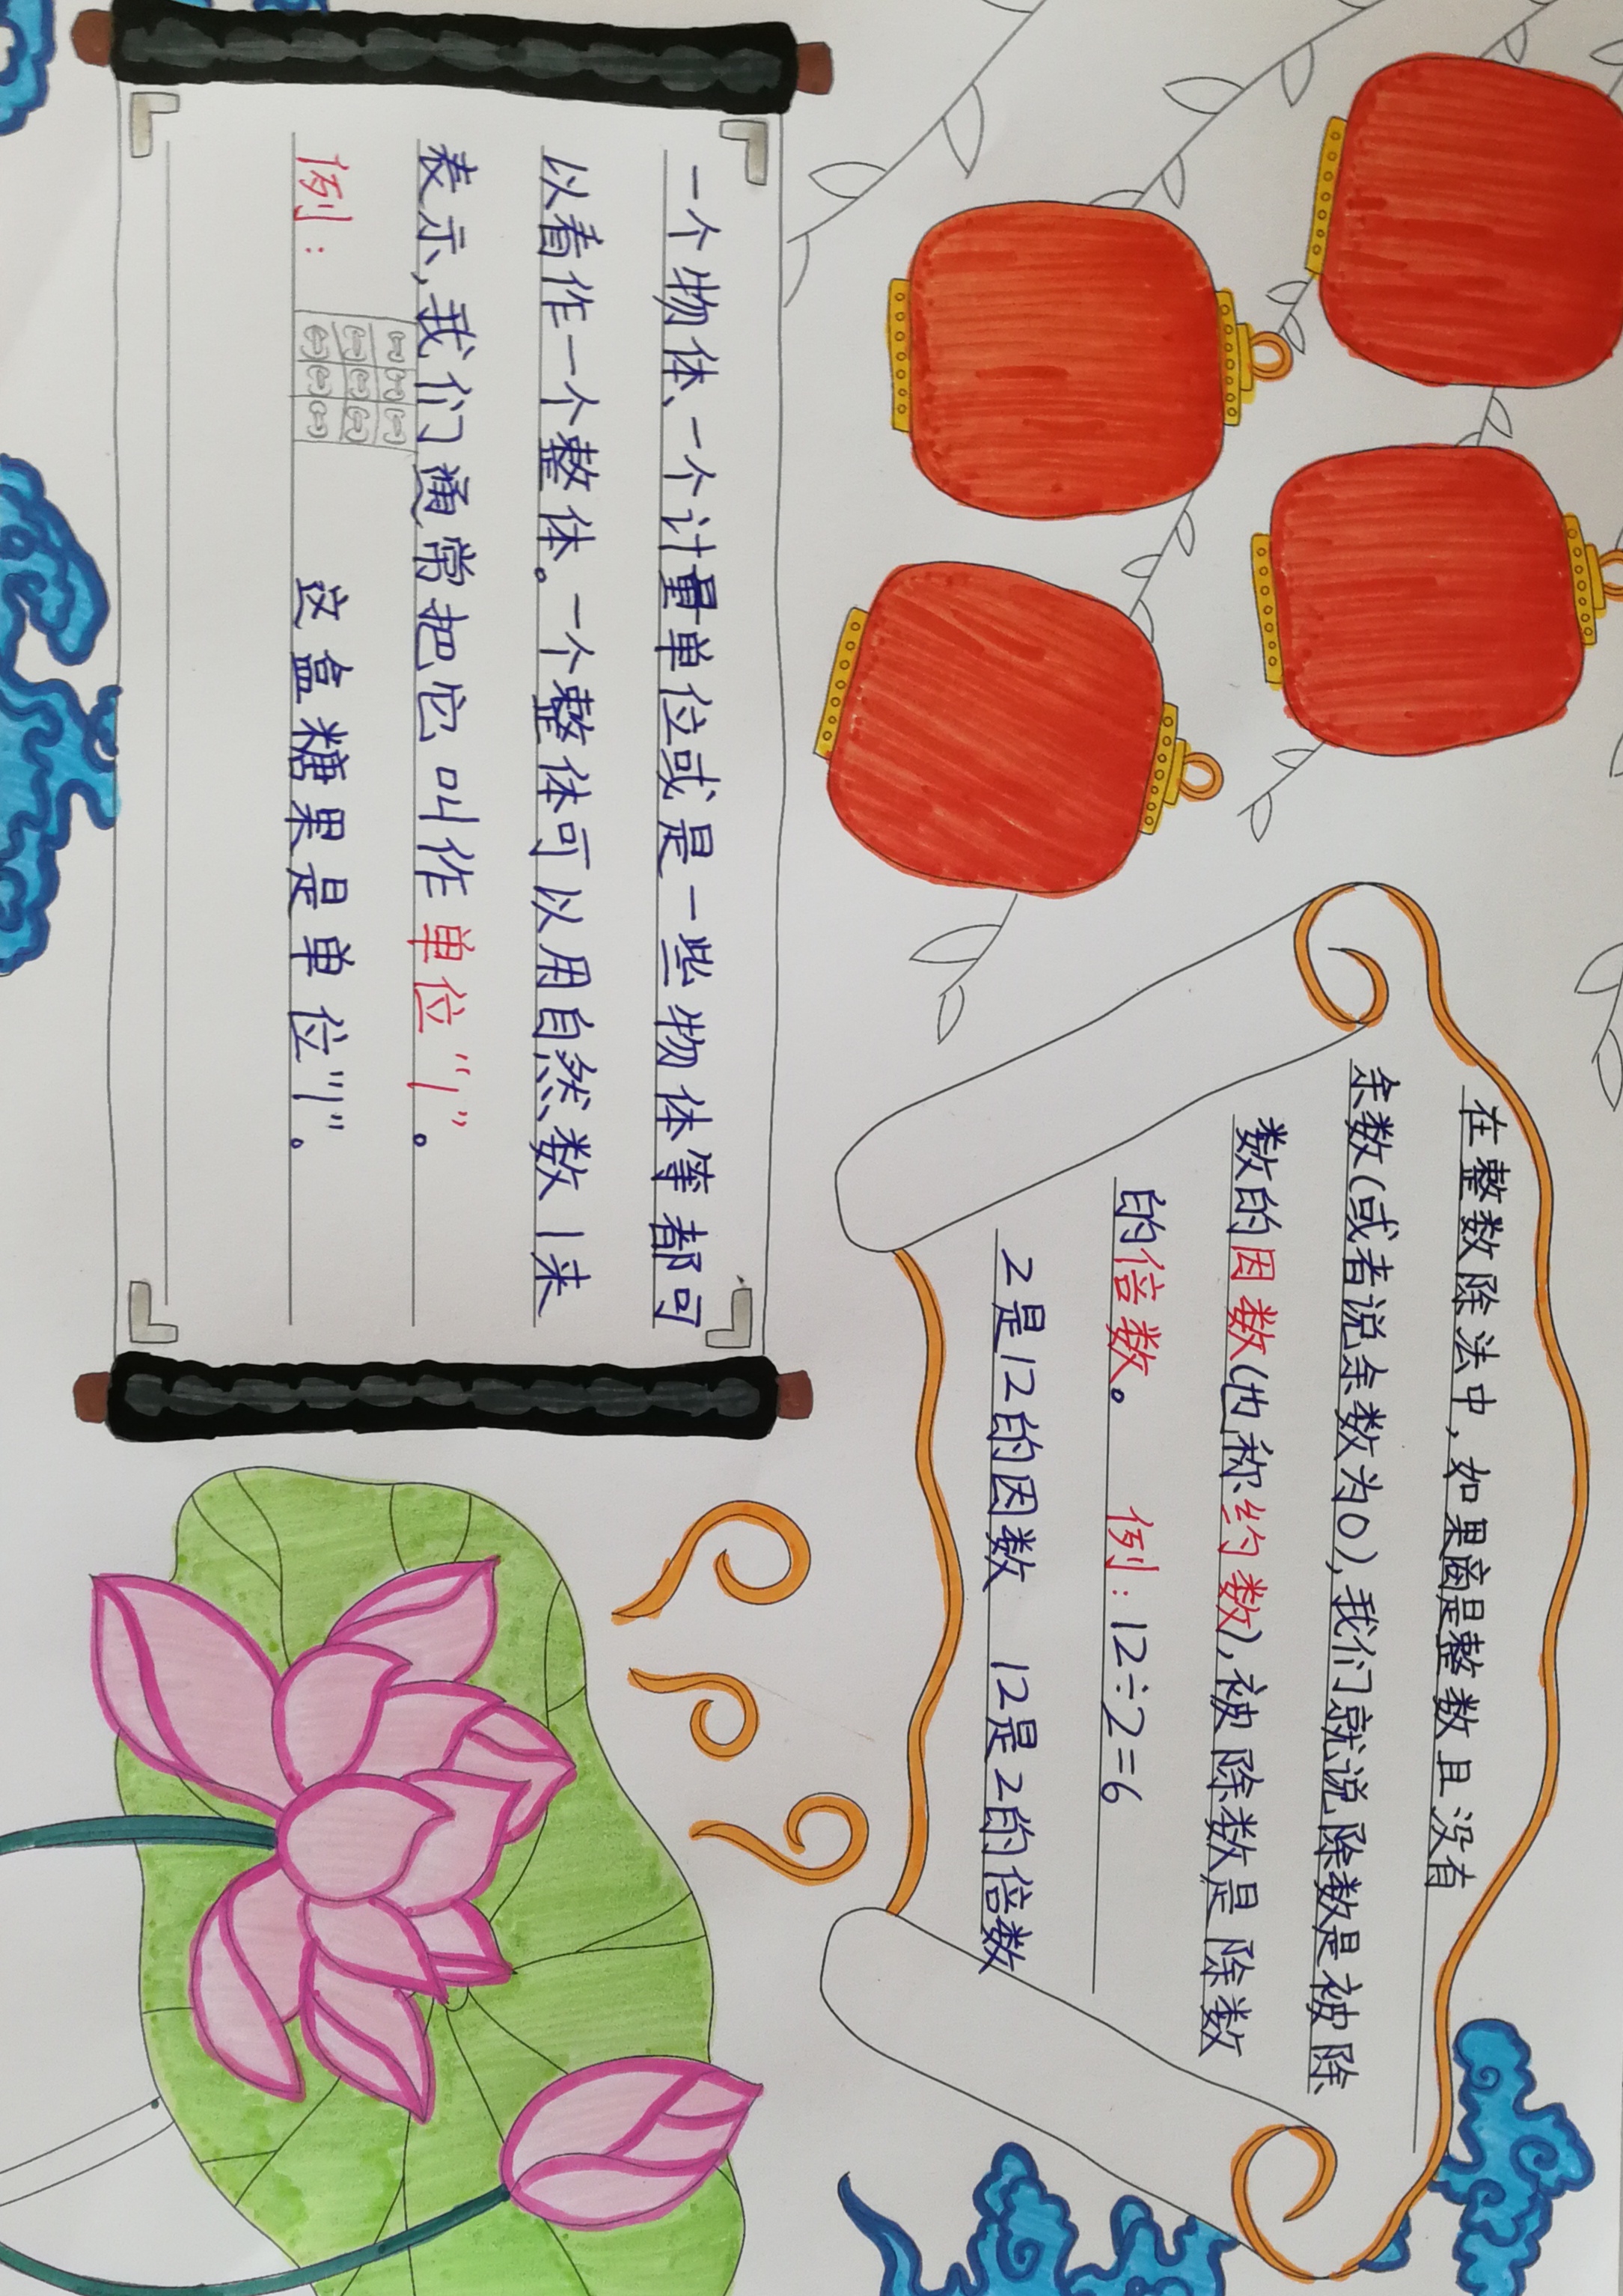 在整数除法中,如果商是整数且没有
余数(或者说余数为0),我们就说除数是被除
数的因数(也称约数),被除数是除数
的倍数。 例:12÷2=6
2是12的因数 12是2的倍数
一个物体、一个计量单位或是一些物体等都可
以看作一个整体。一个整体可以用自然数1来
表示,我们通常把它叫作单位“1”。
例: 这盒糖果是单位“1”。